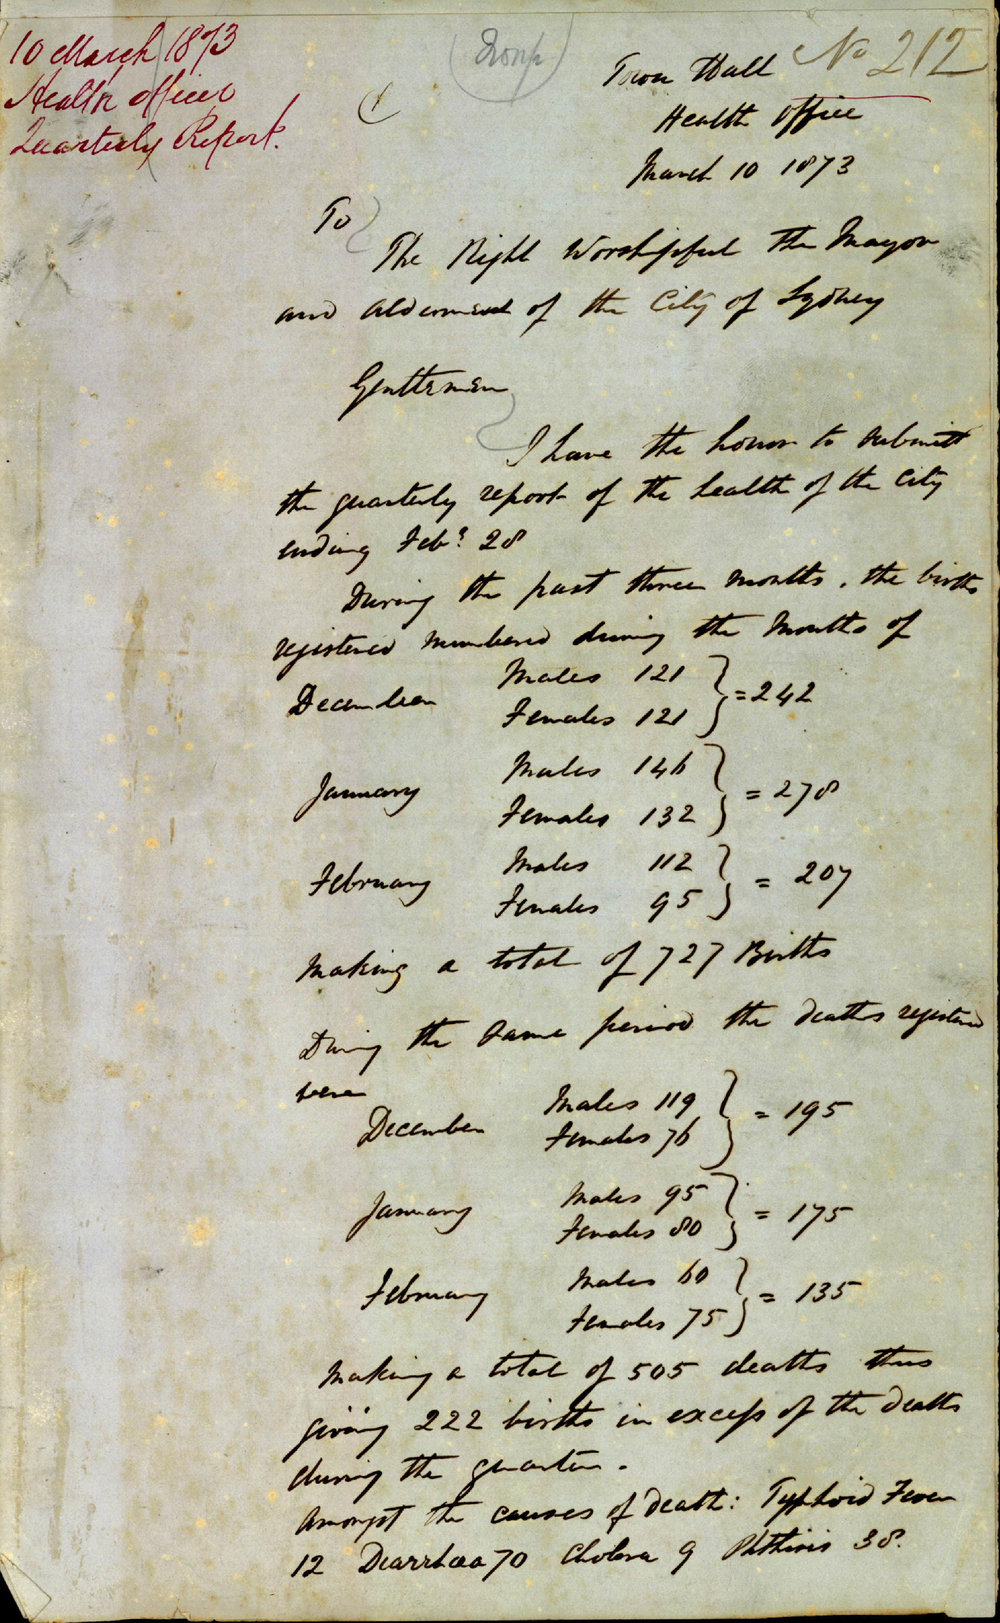 10 March 1873
Health officer
Quarterly Report.
No 212
Town Hall
Health Office
March 10 1873
To
The Right Worshipful the Mayor
and Aldermen of the City of Sydney
Gentlemen
I have the honor to submit
the quarterly report of the health of the City
ending Feby 28
During the past three months, the births
registered numbered during the months of
December Males 121 } = 242
Females 121
January Males 146 } = 278
Females 132
February Males 112 } = 207
Females 95
Making a total of 727 Births
During the same period the deaths registered
were
December Males 119 } = 195
Females 76
January Males 95 } = 175
Females 80
February Males 60 } = 135
Females 75
Making a total of 505 deaths thus
giving 222 births in excess of the deaths
during the quarter.
Amongst the causes of death: Typhoid Fever
12 Diarrhœa 70 Cholera 9 Phthisis 38.